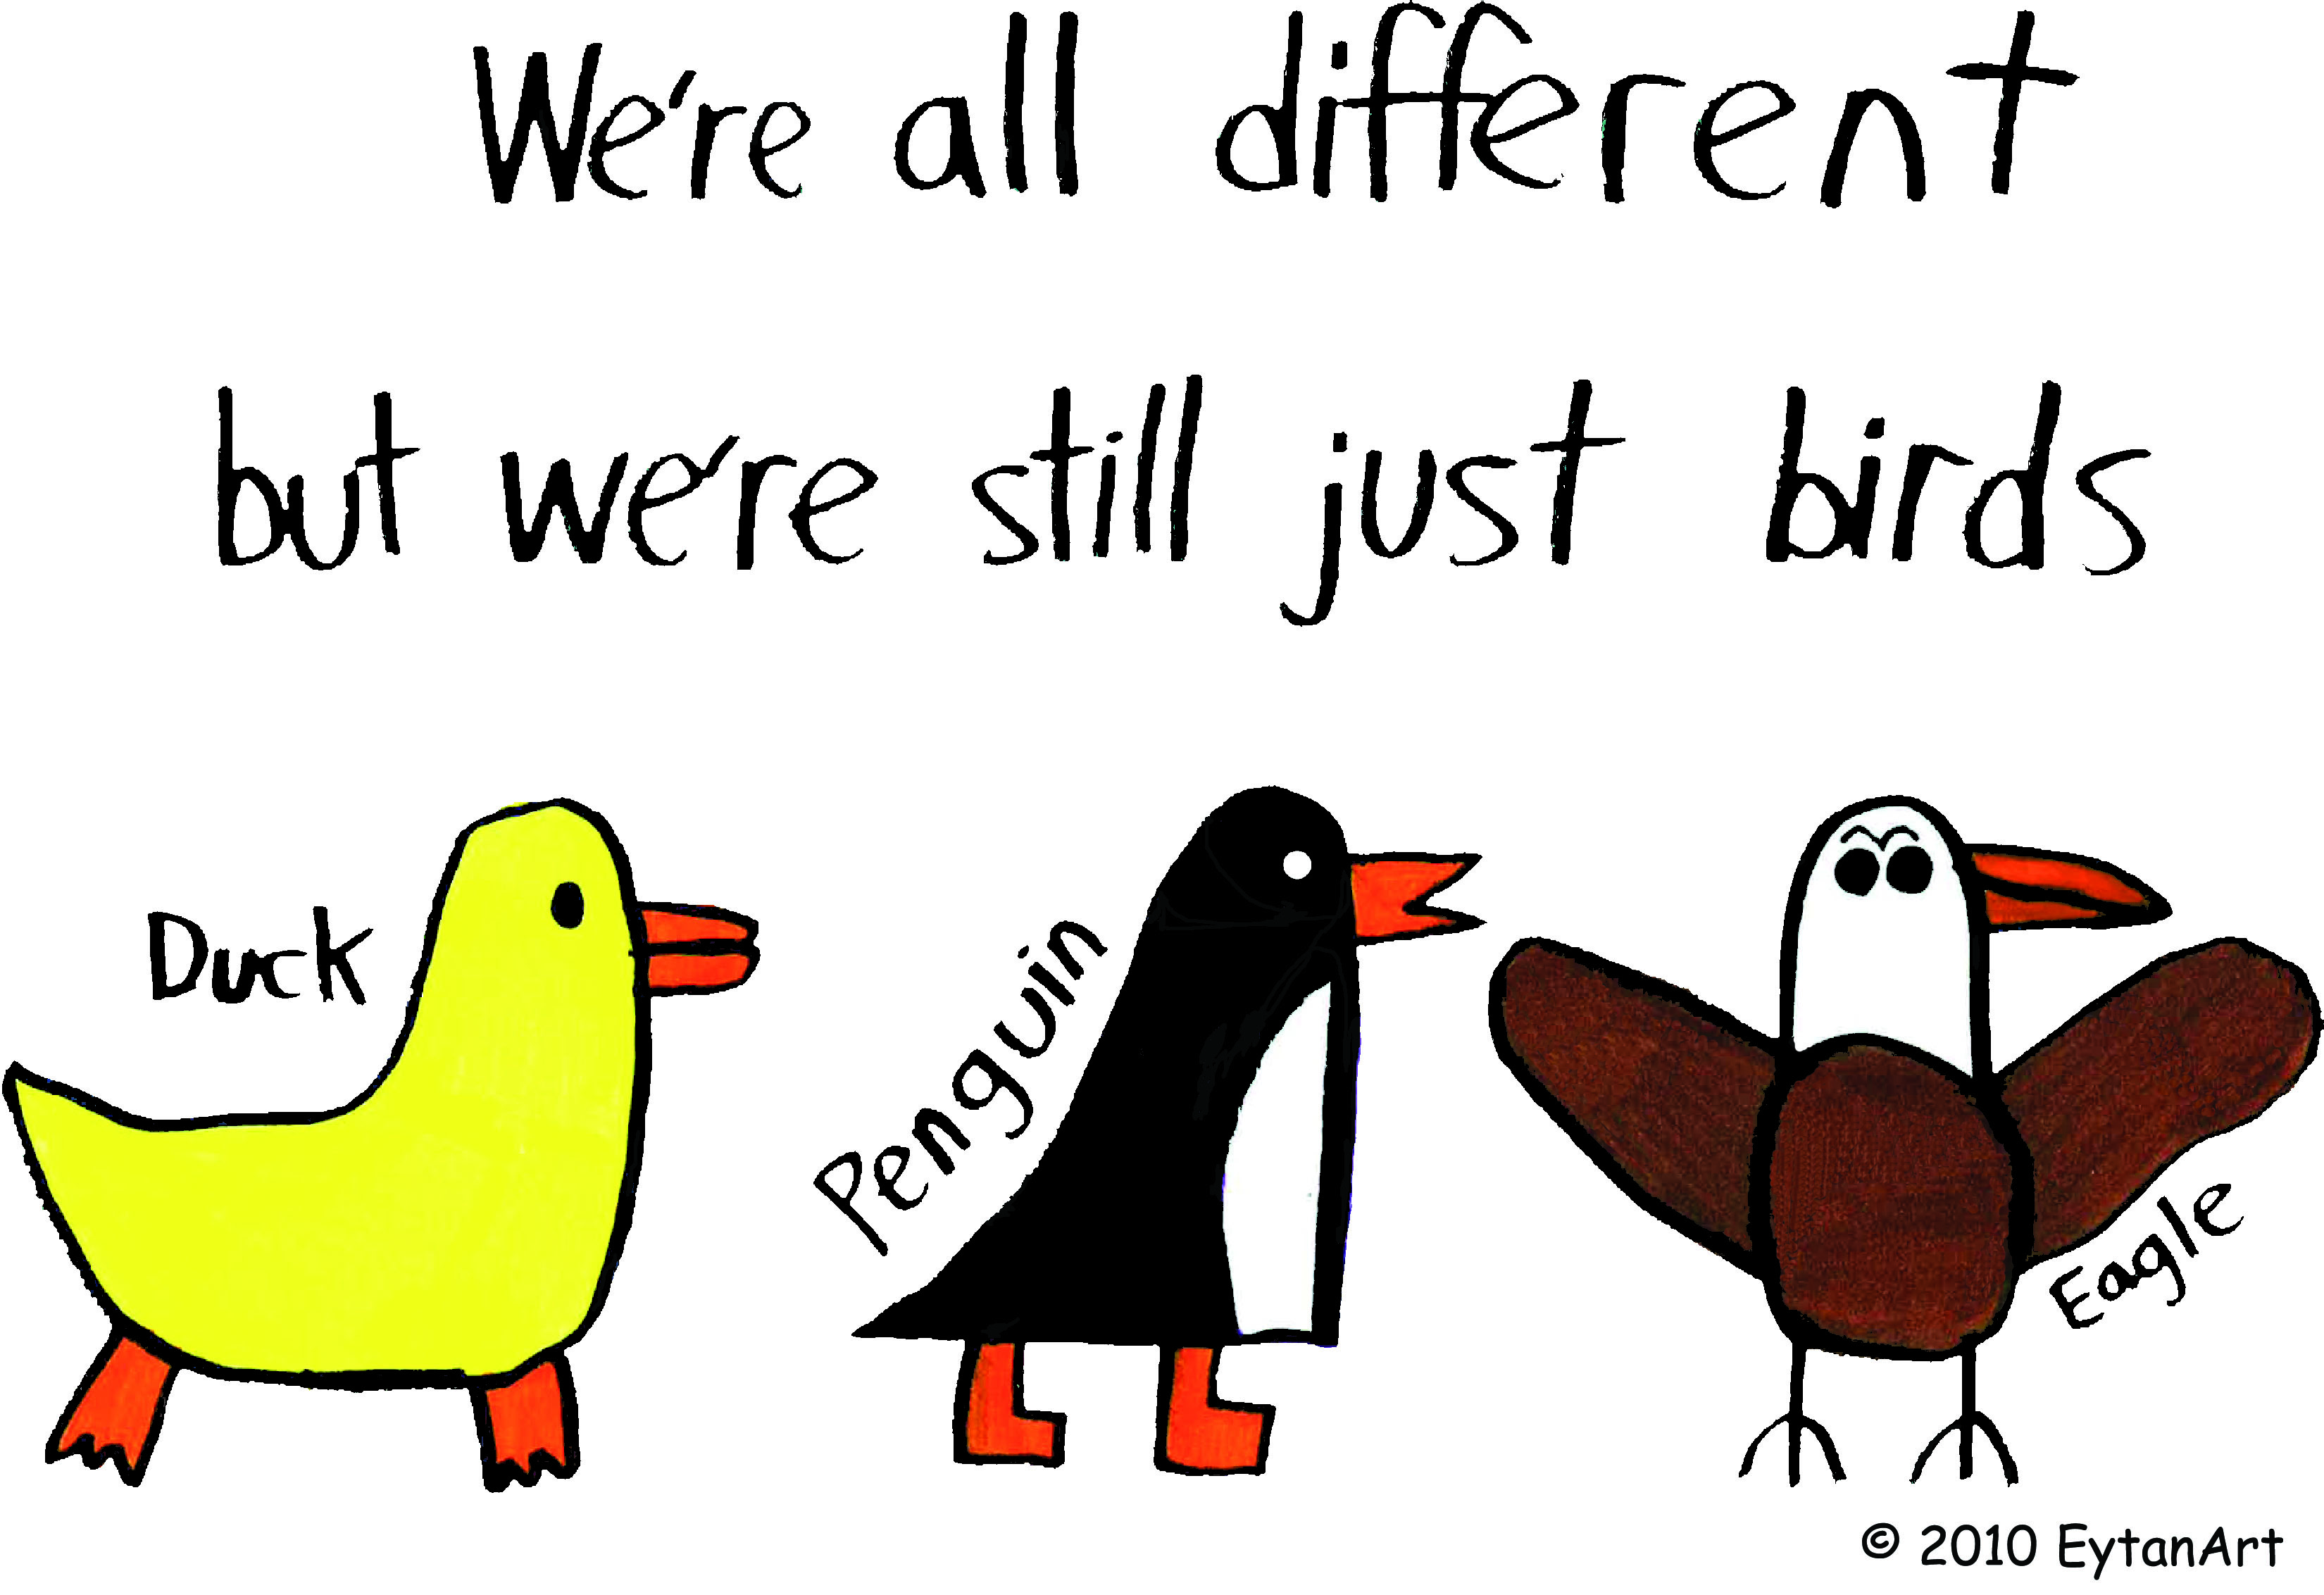 We're all different
but we're still just birds
Duck
Penguin
Eagle
© 2010 EytanArt